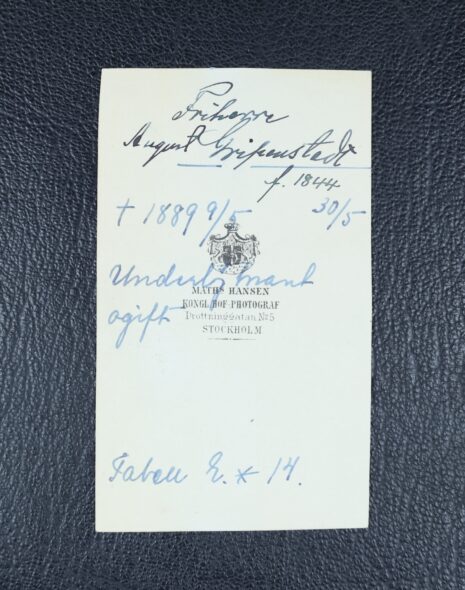 Friherre
August Gripenstedt
f. 1844
30/5
+ 1889 9/5
Underlöjtnant
MATHS HANSEN
KONGL. HOF-PHOTOGRAF
ogift
Drottninggatan No 5
STOCKHOLM
Tabell 2. * 14.